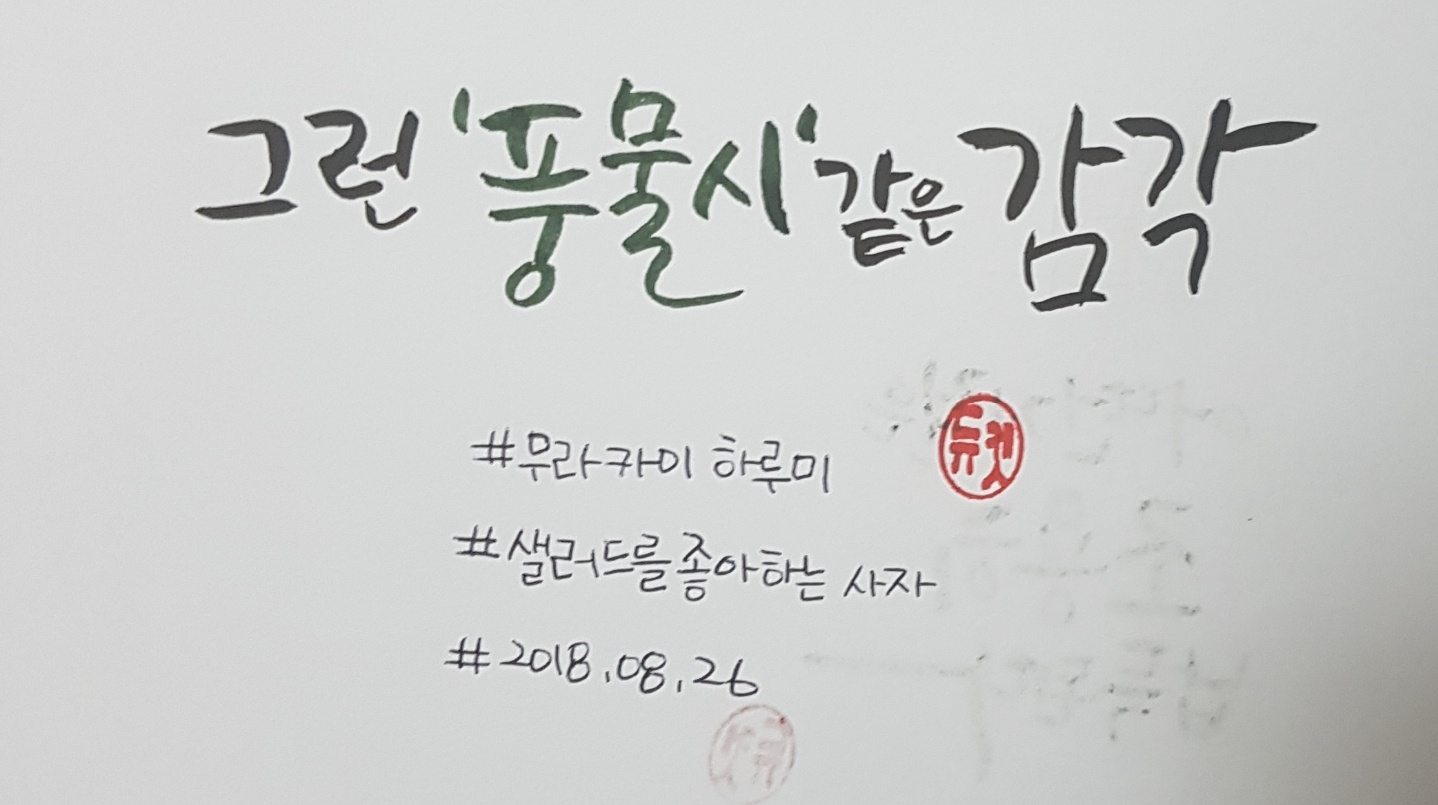 그런 '풍물시' 같은 감각
#무라카미 하루미
#샐러드를 좋아하는 사자
#2018.08.26
듀켓